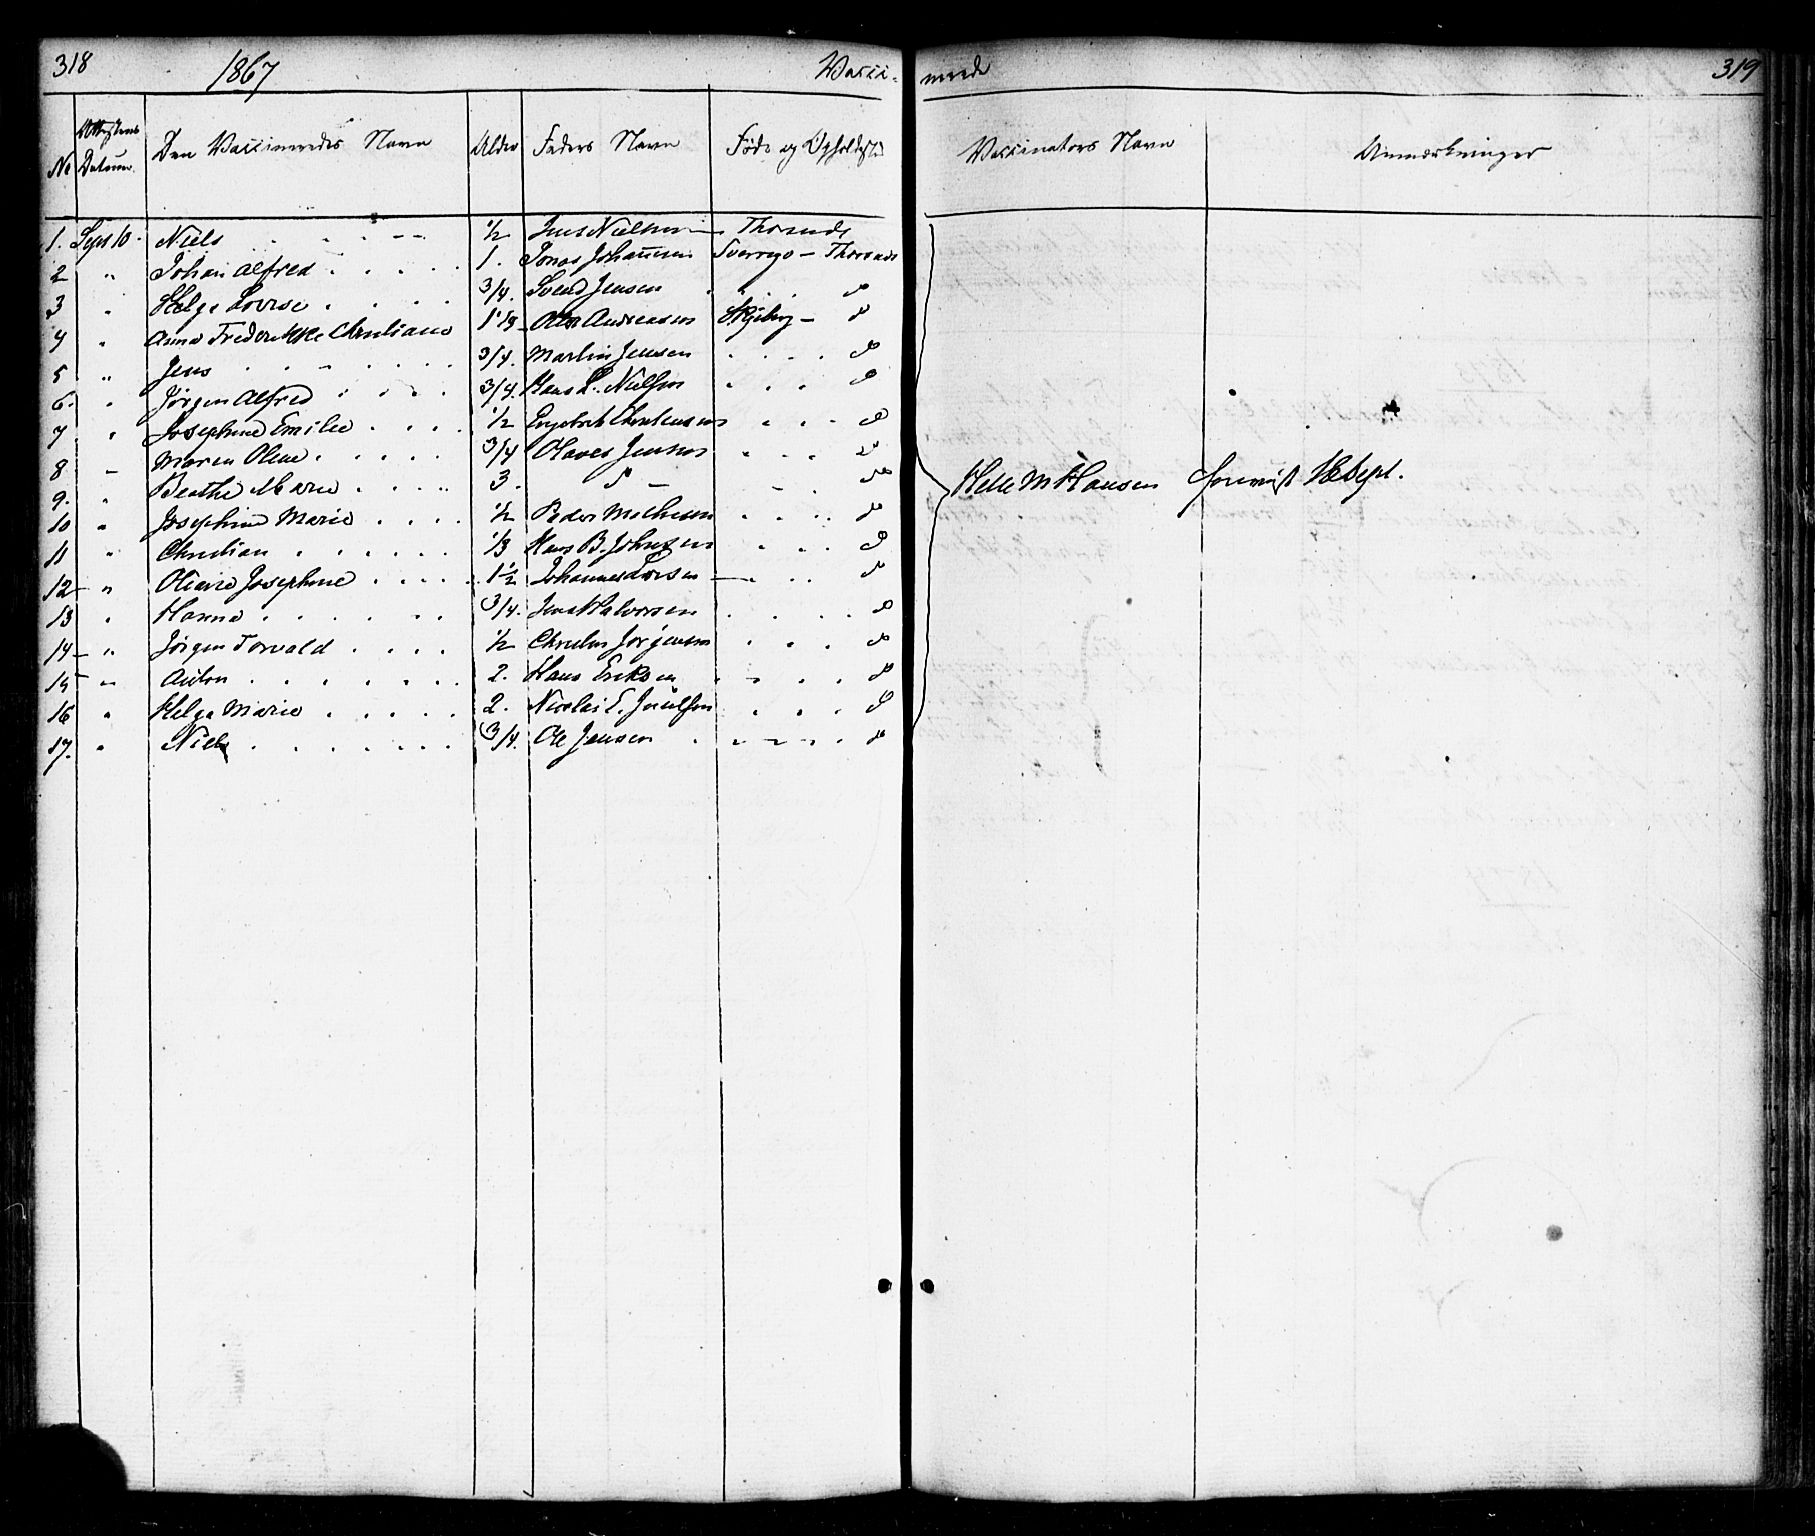 318 1867 Vacci- nerede 319
No Attestens Datum. Den Vaccineredes Navn Alder Faders Navn Føde og Opholdssted Vaccinators Navn Anmærkninger
1. Sept 10. Niels ½ Jens Nielsen Thorsnæs
2 " Johan Alfred 1. Jonas Johansen Sverrige – Thorsnæs
3 " Helga Lovise 3/4. Svend Jensen " do
4 " Anna Frederikke Christiane 1 1/3 Andreasen Skjeberg – do
5 " Jens 3/4. Martin Jensen do
6. " Jørgen Alfred 3/4. Hans L. Nielsen do
7 " Josephine Emilie ½ Engebret Christensen do
8 – Maren Oline 3/4 Olaves Jensen do
9. " Beathe Marie 3. do – do
10 " Josephine Marie ½ Peder Mathesen do
11 " Christian 1/3 Hans B. Johnsen do
12 – " Oliane Josephine 1½ Johannes Larsen do
13 " Hanna 3/4. Jens Halvorsen do
14 – " Jørgen Torvald ½ Christen Jørgensen do
15 – " Anton 2. Hans Eriksen do
16 " Helga Marie 2. Nicolai E. Juulsen do
17. " Niels 3/4. Ole Jensen do
Helle M Hansen Sept.